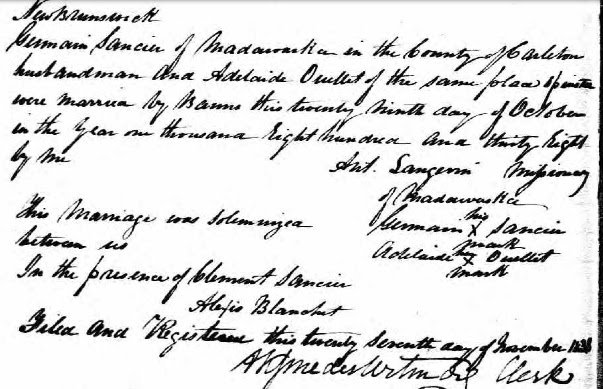 New Brunswick
Germain Sancier of Madawaska in the County of Carleton
husbandman and Adelaide Ouellet of the same place spinster
were married by Banns this twenty ninth day of October
in the Year one thousand Eight hundred and thirty Eight
by me Ant. Langevin Missionary
of Madawaska
This Marriage was solemnized between us
Germain his X mark Sancier
Adelaide her X mark Ouellet
In the presence of Clement Sancier
Alexis Blanchet
Filed and Registered this twenty Seventh day of November 1838
Clerk